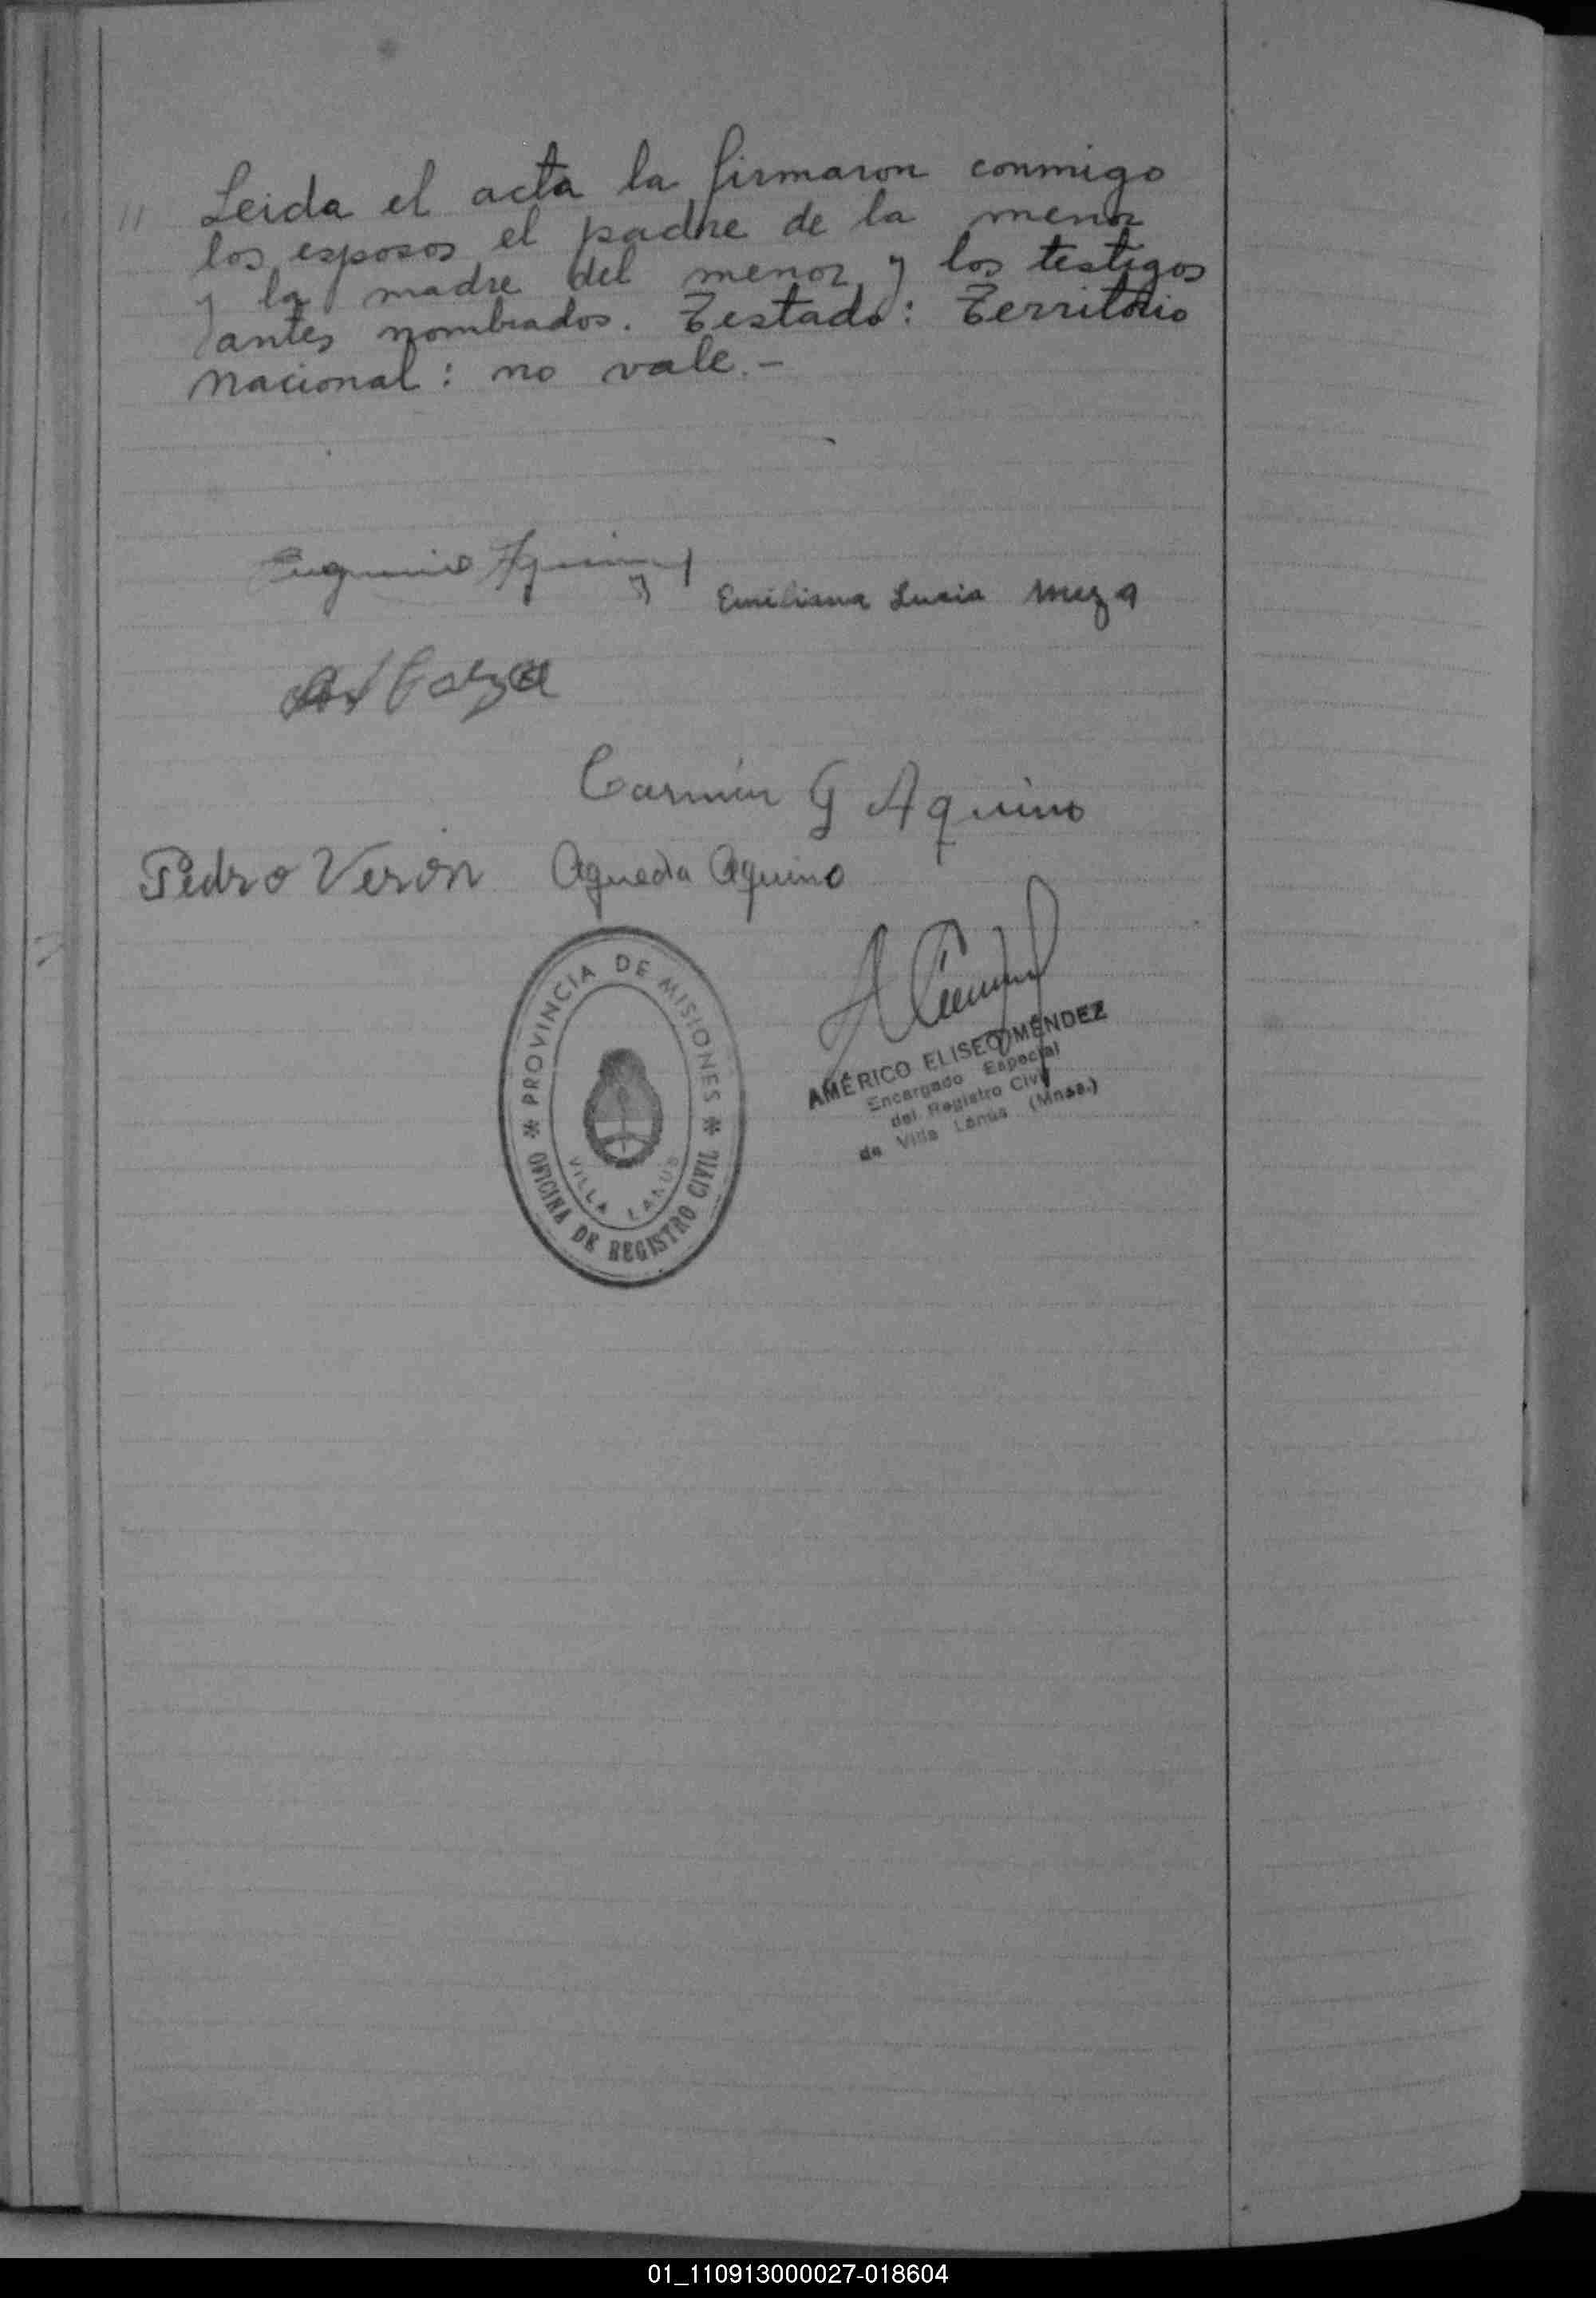 " Leida el acta la firmaron conmigo
los esposos el padre de la menor
y la madre del menor y los testigos
antes nombrados. Testado: Territorio
Nacional: no vale.-
Eugenio Aquino
Emiliana Lucia Meza
Carmen G Aquino
Pedro Verón Agueda Aquino
PROVINCIA DE MISIONES
VILLA LANUS
OFICINA DE REGISTRO CIVIL
AMÉRICO ELISEO MÉNDEZ
Encargado Especial
del Registro Civil
de Villa Lanús (Mnes.)
01_110913000027-018604